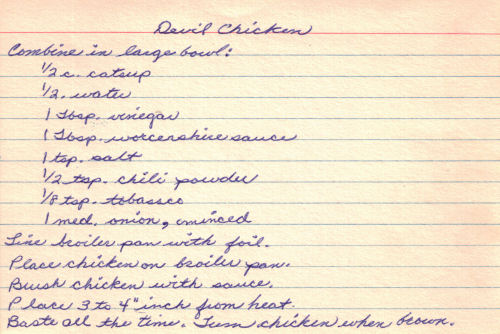 Devil Chicken
Combine in large bowl:
1/2 c. catsup
1/2. water
1 Tbsp. vinegar
1 Tbsp. worcershire sauce
1 tsp. salt
1/2 tsp. chili powder
1/8 tsp. tobassco
1 med. onion, minced
Line broiler pan with foil.
Place chicken on broiler pan.
Brush chicken with sauce.
Place 3 to 4" inch from heat.
Baste all the time. Turn chicken when brown.